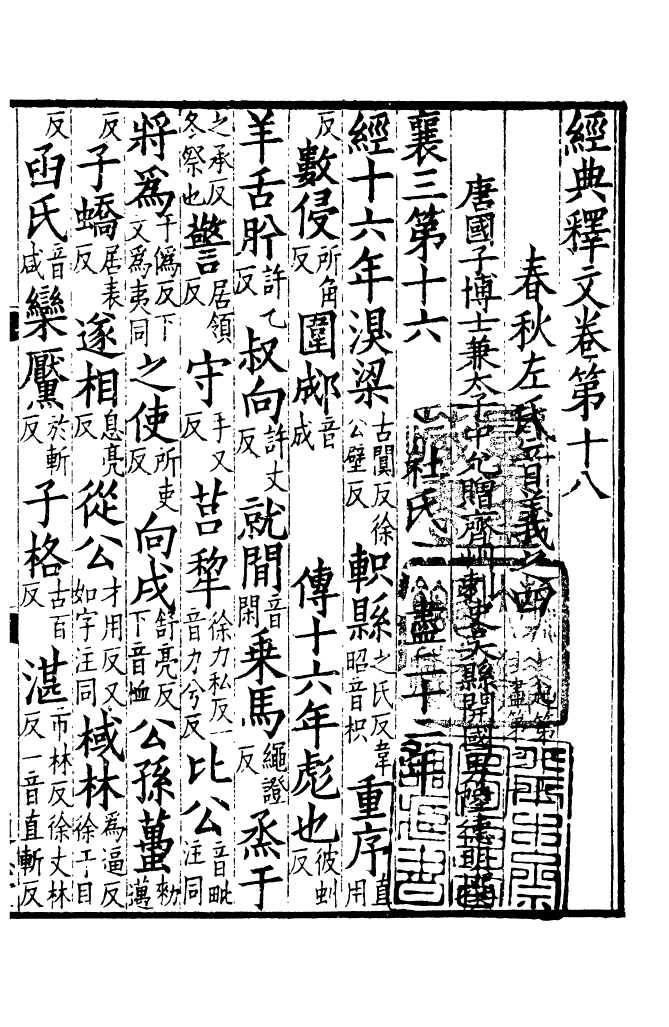 經典釋文卷第十八
春秋左氏音義之四
唐國子博士兼太子中允贈齊州刺史吳縣開國男陸德明撰
襄三第十六 杜氏 盡二十二年
經十六年溴梁古闃反徐公壁反軹縣之氏反韋昭音枳重序直用
反數侵所角反圍郕音成 傳十六年彪也彼虯反
羊舌肸許乙反叔向許丈反就閒音閑乗馬繩證反烝于
之承反冬祭也警居領反守手又反莒犂徐力私反一音力兮反比公音毗注同
將爲于僞反下文爲夷同之使所吏反向戌舒亮反下音恤公孫蠆勑邁
反子蟜居表反遂相息亮反從公才用反又如字注同棫林爲逼反徐于目
反函氏音咸欒黶於斬反子格古百反湛市林反徐丈林反一音直斬反